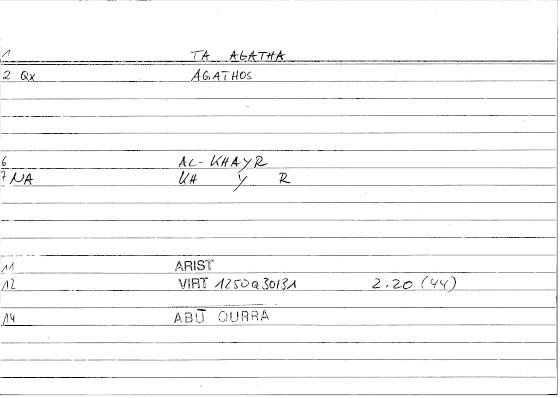 1 TA AGATHA
2 Qx AGATHOS
6 AL-KHAYR
7 NA KH Y R
11 ARIST
12 VIRT 1250a30131 2.20 (44)
14 ABŪ QURRA